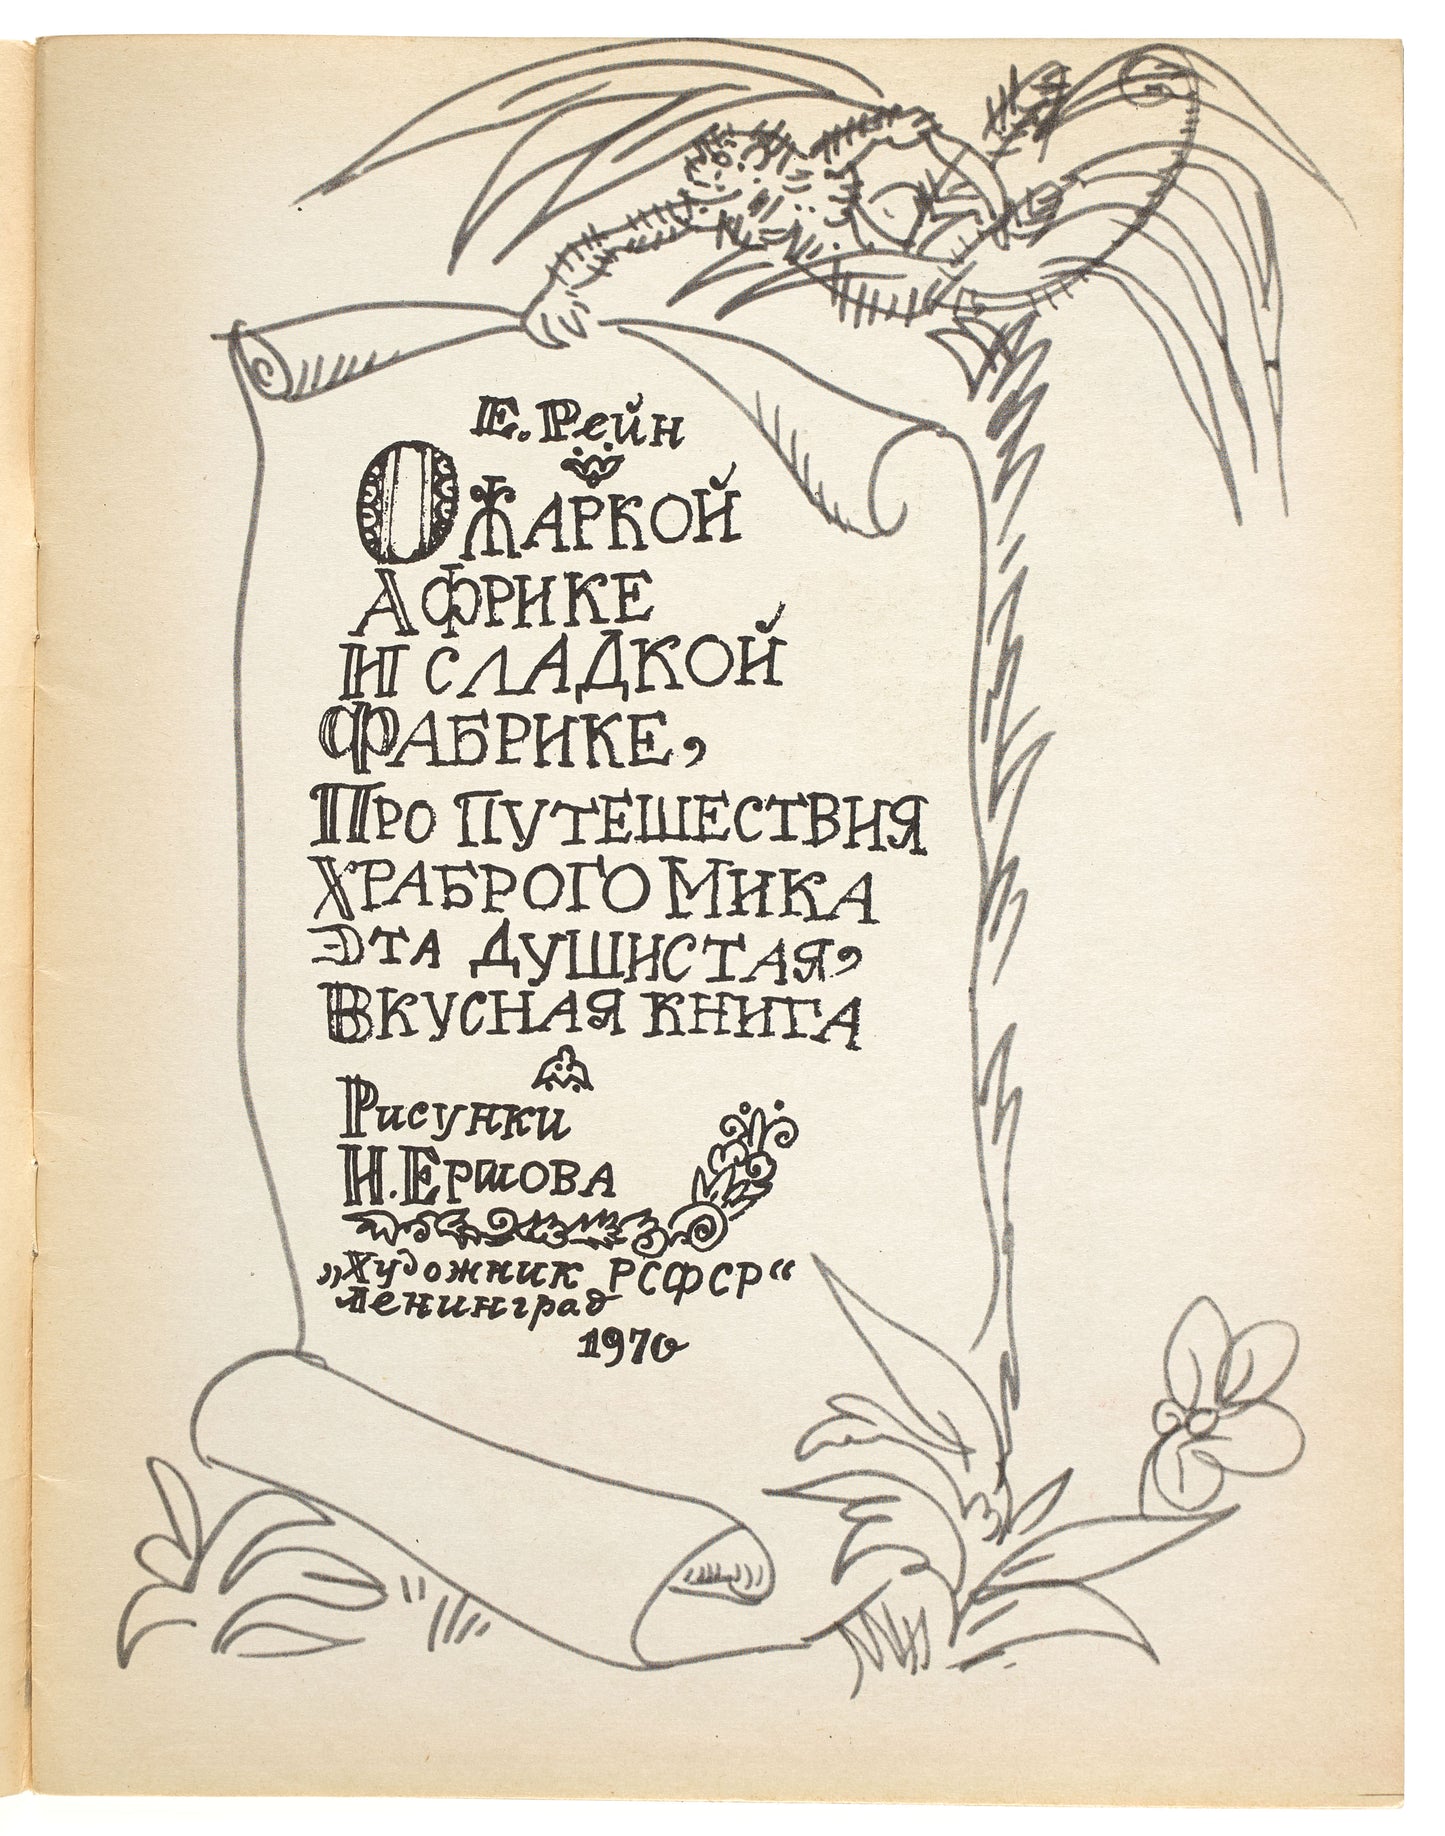 Е. Рейн
О ЖАРКОЙ
АФРИКЕ
И СЛАДКОЙ
ФАБРИКЕ,
ПРО ПУТЕШЕСТВИЯ
ХРАБРОГО МИКА
ЭТА ДУШИСТАЯ,
ВКУСНАЯ КНИГА
Рисунки
Н. ЕРШОВА
„Художник РСФСР“
Ленинград
1970